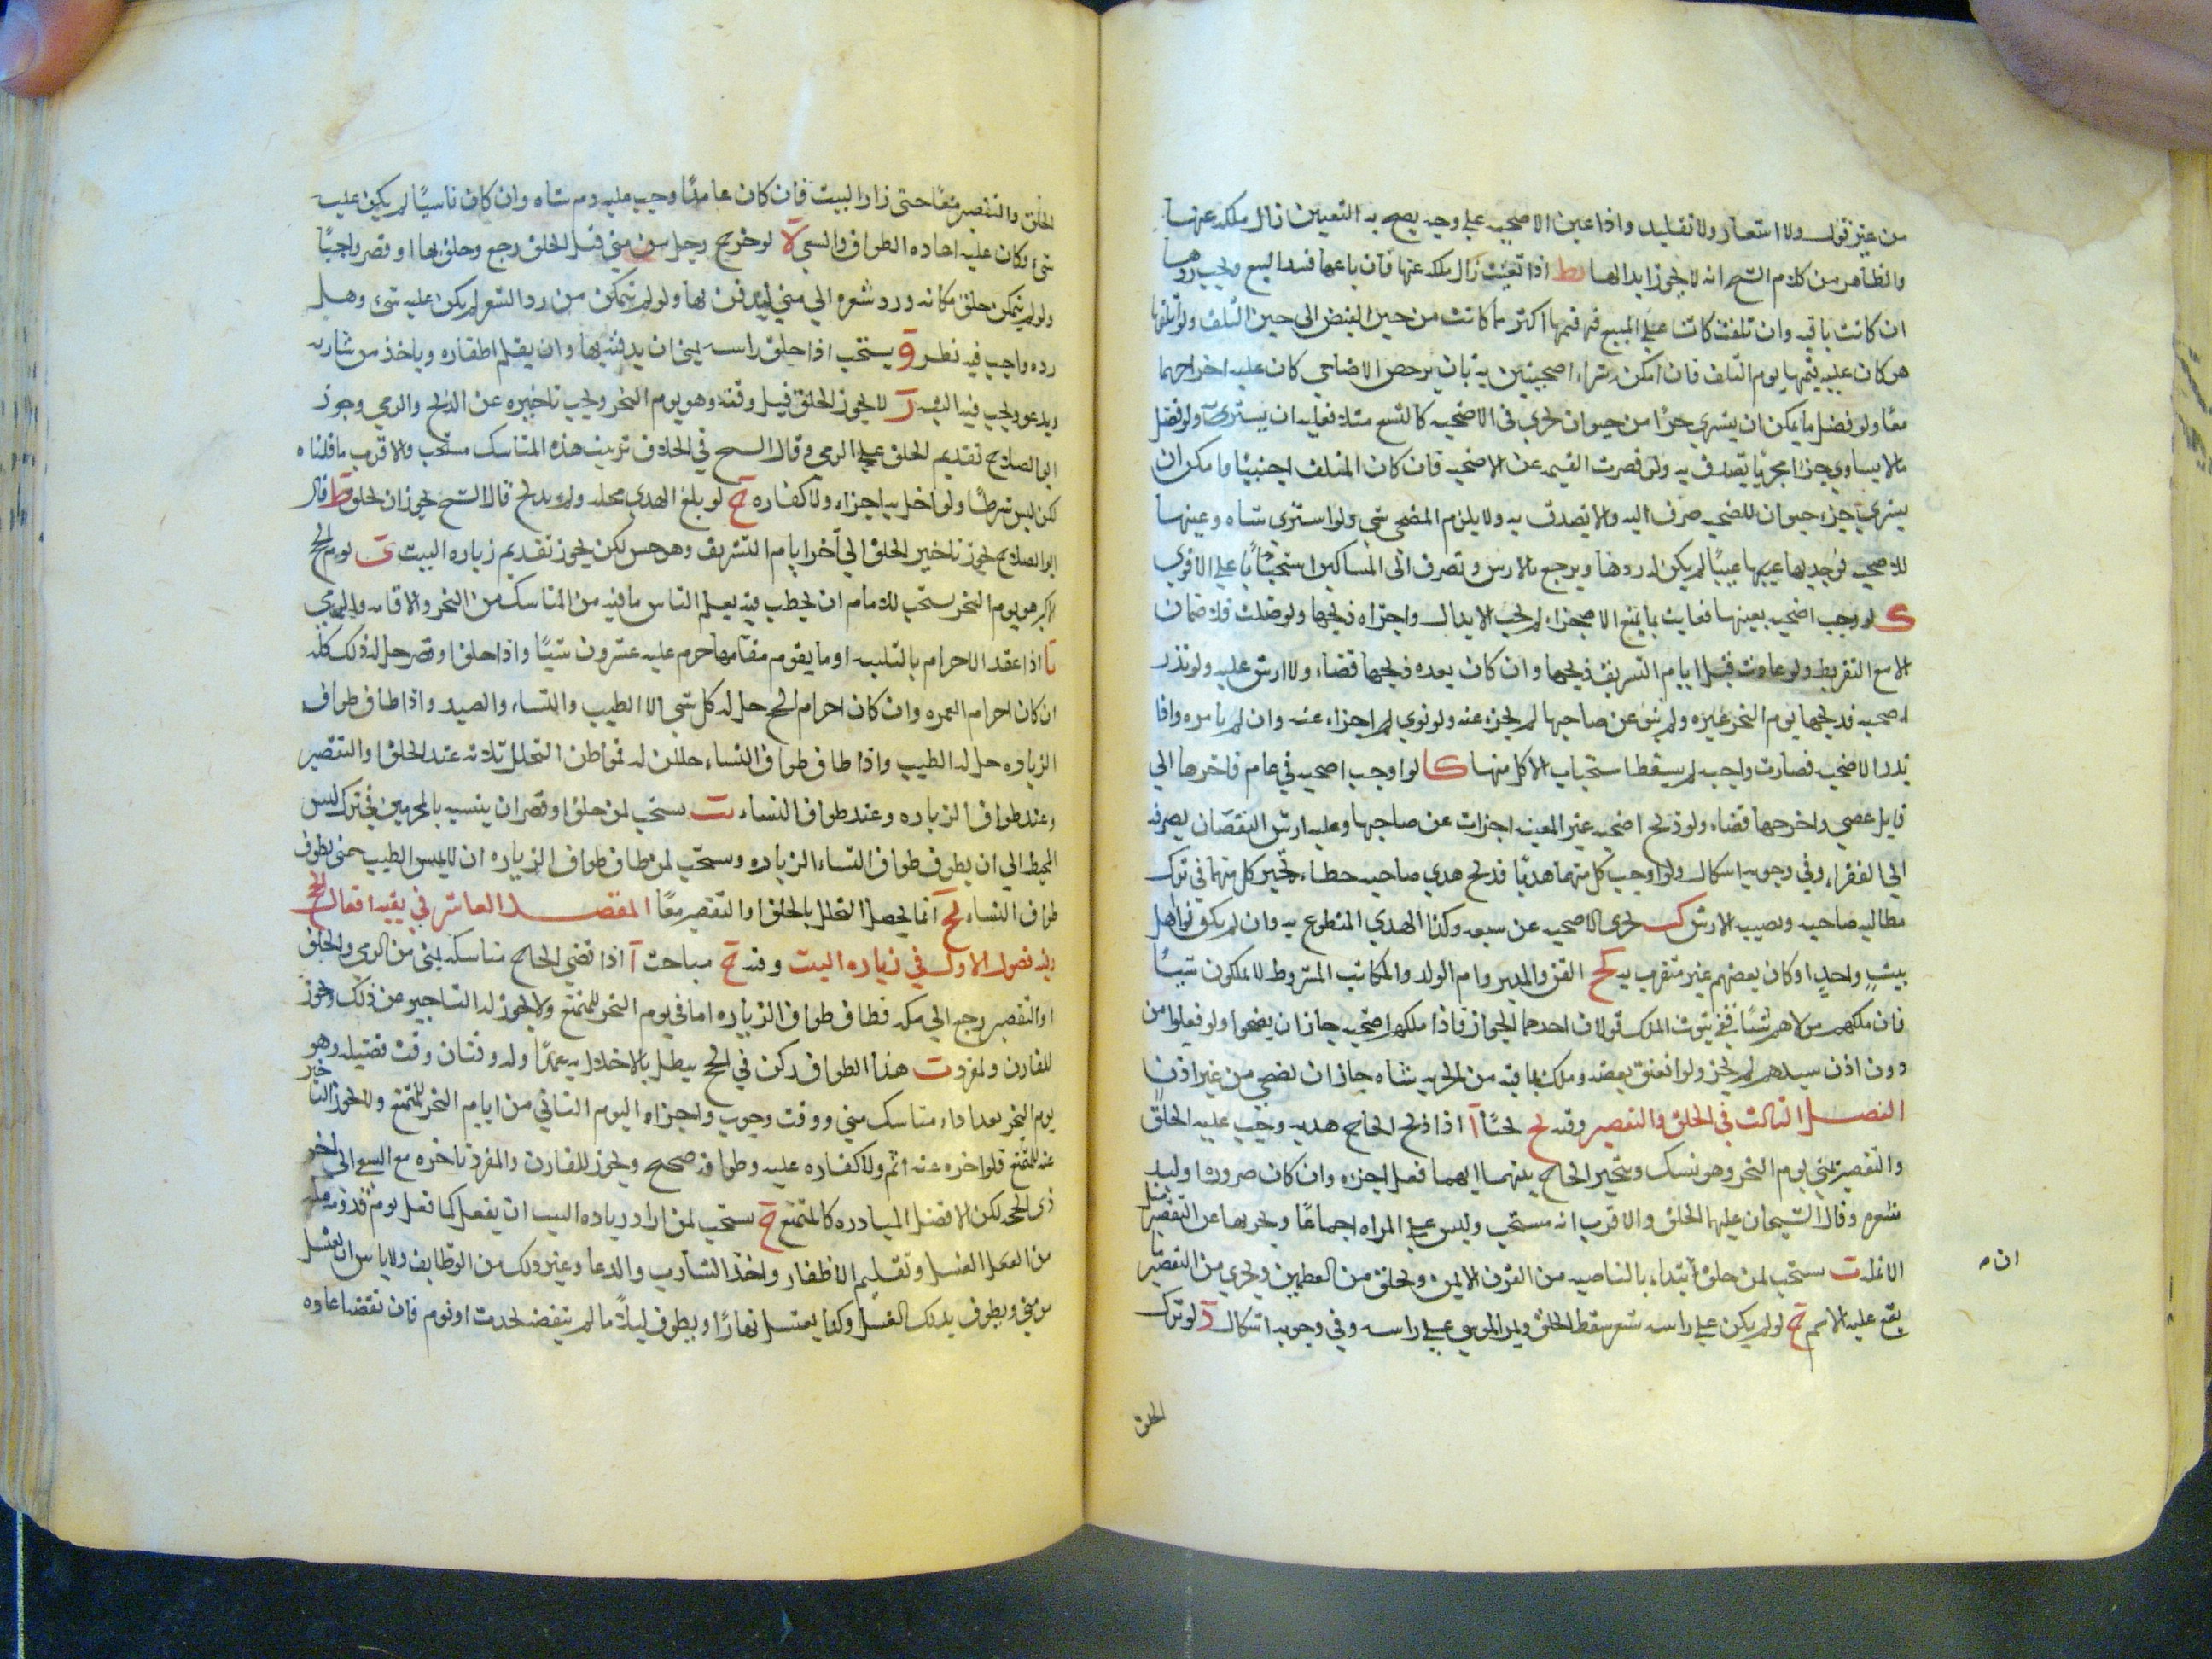 من غير قول ولا اشعار ولا تقليد واذا عين الاضحيه على وجه يصح به التعيين زال ملكه عنها
والظاهر من كلام الشيخ انه لا يجوز ابدالها يط اذا تعينت زال ملكه عنها فان باعها فسد البيع ويجب ردها
ان كانت باقيه وان تلفت كان على المبيع قيمتها اكثر ما كانت من حين القبض الى حين التلف ولو اتلفها
هو كان عليه قيمتها يوم التلف فان امكن شراء اضحيتين به بان يرخص الاضاحي كان عليه اخراجهما
معًا ولو فضل ما يمكن ان يشتري جزءًا من حيوان يجزي في الاضحيه كالسبع مثلا فعليه ان يشتريه ولو فضل
ما لا يساوي جزءا مجزيا يتصدق به ولو قصرت القيمه عن الاضحيه فان كان المتلف اجنبيًا وامكن ان
يشتري جزء حيوان للضحيه صرف اليه والا يتصدق به ولا يلزم المضحي شي ولو اشتري شاه وعينها
للاضحيه فوجد بها عيبًا لم يكن له ردها ويرجع بالارش وتصرف الى المساكين استحبابًا على الاقوي
ك لو وجب اضحيه بعينها فعابت بما يمنع الاجزاء لم يجب الابدال واجزاه ذبحها ولو ضلت فلا ضمان
الا مع التفريط ولو عادت قبل ايام التشريق ذبحها وان كان بعده ذبحها قضاء ولا ارش عليه ولو نذر
اضحيه فذبحها يوم النحر غيره ولم ينو عن صاحبها لم يجزه عنه ولو نوي له اجزاه عنه وان لم يامره واذا
نذر الاضحيه فصارت واجبه لم يسقط استحباب الاكل منها كا لو اوجب اضحيه في عام فاخرها الي
قابل عصي واخرجها قضاء ولو ذبح اضحيه غير المعينه اجزات عن صاحبها وعليه ارش النقصان يصرفه
الي الفقراء وفي وجوبه اشكال ولو اوجب كل منهما هديًا فذبح هدي صاحبه خطاء تخير كل منهما في ترك
مطالبه صاحبه ونصيبه الارش كب يجزي الاضحيه عن سبعه وكذا الهدي المتطوع به وان لم يكونوا اهل
بيتٍ واحدٍ او كان بعضهم غير متقرب به كج القن والمدبر وام الولد والمكاتب المشروط لا يملكون شيئًا
فان ملكهم مولاهم شيًا ففي ثبوت الملك قولان احدهما الجواز فاذا ملكهم اضحيه جاز ان يضحوا ولو فعلوا من
دون اذن سيدهم لم يجز ولو انعتق بعضه وملك بما فيه من الحريه شاه جاز ان يضحي من غير اذن
الفصل الثالث في الحلق والتقصير وفيه يج بحثًا آ اذا ذبح الحاج هديه وجب عليه الحلق
والتقصير بمني يوم النحر وهو نسك ويتخير الحاج بينهما ايهما فعل اجزاه وان كان صروره او لبد
شعره وقال الشيخان عليهما الحلق والاقرب انه مستحب وليس على المراه اجماعًا ويجزيها من التقصير مثل
الانمله ب يستحب لمن حلق ابتداء بالناصيه من القرن الايمن ويحلق من العظمين ويجزي من التقصير ما
يقع عليه الاسم ج لو لم يكن على راسه شعر سقط الحلق ويمر الموسي على راسه وفي وجوبه اشكال د لو ترك
ان م
الحلق
الحلق والتقصير معًا حتى زار البيت فان كان عامدًا وجب عليه دم شاه وان كان ناسيًا لم يكن عليه
شئ وكان عليه اعاده الطواف والسعي ه لو خرج رجل من مني قبل الحلق رجع وحلق بها او قصر واجبًا
ولو لم يتمكن حلق مكانه ورد شعره الي مني ليدفن بها ولو لم يتمكن من رد الشعر لم يكن عليه شئ وهل
رده واجب فيه نظر و يستحب اذا حلق راسه بمني ان يدفنه بها وان يقلم اظفاره وياخذ من شاربه
ويدعو ويجب فيه النيه ز لا يجوز الحلق قبل وقته وهو يوم النحر ويجب تاخيره عن الذبح والرمي وجوز
ابو الصلاح تقديم الحلق على الرمي وقال الشيخ في الخلاف ترتيب هذه المناسك مستحب والاقرب ما قلناه
لكن ليس شرطًا ولو اخل به اجزاه ولا كفاره ح لو بلغ الهدي محله ولم يذبح قال الشيخ يجوز ان يحلق ط قال
ابو الصلاح يجوز تاخير الحلق الي آخر ايام التشريق وهو حسن لكن لا يجوز تقديم زياره البيت ى يوم الحج
الاكبر هو يوم النحر يستحب للامام ان يخطب فيه يعلم الناس ما فيه من المناسك من النحر والافاضه والرمي
يا اذا عقد الاحرام بالتلبيه او ما يقوم مقامها حرم عليه عشرون شيًا واذا حلق او قصر حل له ذلك كله
ان كان احرام العمره وان كان احرام الحج حل له كل شي الا الطيب والنساء والصيد واذا طاف طواف
الزياره حل له الطيب واذا طاف طواف النساء حللن له فمواطن التحلل ثلاثه عند الحلق او التقصير
وعند طواف الزياره وعند طواف النساء يب يستحب لمن حلق او قصر ان يتشبه بالمحرمين في ترك لبس
المخيط الي ان يطوف طواف النساء الزياره ويستحب لمن طاف طواف الزياره ان لا يمس الطيب حتى يطوف
طواف النساء يج انما يحصل التحلل بالحلق او التقصير معًا المقصد العاشر في بقيه افعال الحج
وفيه فصول الاول في زياره البيت وفيه ح مباحث آ اذا قضي الحاج مناسكه بمني من الرمي والحلق
او التقصير رجع الي مكه فطاف طواف الزياره اما في يوم النحر للمتمتع ولا يجوز له التاخير عن ذلك ويجوز
للقارن والمفرد ب هذا الطواف ركن في الحج يبطل بالاخلال به عمدًا وله وقتان وقت فضيله وهو
يوم النحر بعد اداء مناسك مني ووقت وجوب واجزاء اليوم الثاني من ايام النحر للمتمتع ولا يجوز التاخير
عنه للمتمتع فلو اخره عنه اثم ولا كفاره عليه وطوافه صحيح ويجوز للقارن والمفرد تاخره مع السعي الي اخر
ذي الحجه لكن الافضل المبادره كالمتمتع ج يستحب لمن اراد زياره البيت ان يفعل كما فعل يوم قدومه مكه
من الغسل وتقليم الاظفار واخذ الشارب والدعا وغير ذلك من الوظايف ولا باس ان يغتسل
من مني ويطوف بذلك الغسل وكذا يغتسل نهارًا ويطوف ليلاً ما لم ينقضه بحدث او نوم فان نقضه اعاده